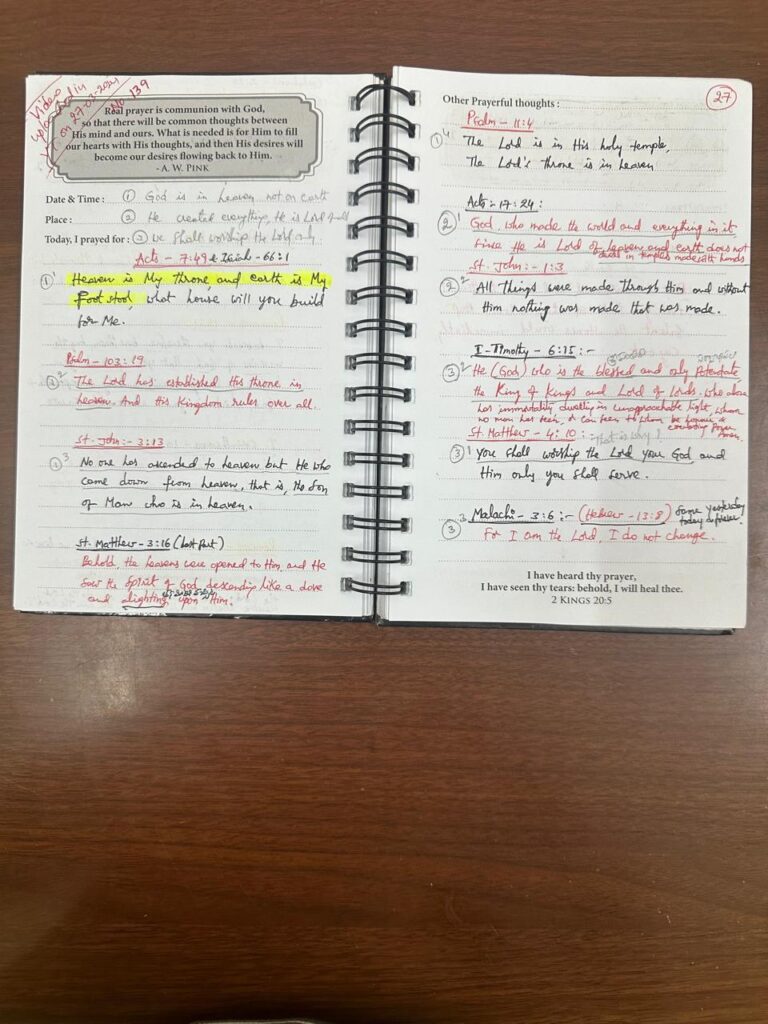 Video
uploaded in
on 27-03-2024
No. 139
Real prayer is communion with God,
so that there will be common thoughts between
His mind and ours. What is needed is for Him to fill
our hearts with His thoughts, and then His desires will
become our desires flowing back to Him.
- A. W. PINK
Date & Time : ① God is in heaven not on earth
Place : ② He created everything, He is Lord
Today, I prayed for : ③ we shall worship the Lord only
Acts - 7:49 & Isaiah - 66:1
①¹ Heaven is My throne and earth is My
Foot stool, what house will you build
for Me.
Psalm - 103:19
②² The Lord has established His throne in
heaven. And His Kingdom rules over all.
St. John :- 3:13
①³ No one has ascended to heaven but He who
came down from heaven, that is, the Son
of Man who is in heaven.
St. Matthew - 3:16 (Last part)
Behold, the heavens were opened to Him, and He
saw the Spirit of God, descending like a dove
and alighting upon Him.
27
Other Prayerful thoughts :
Psalm - 11:4
①⁴ The Lord is in His holy temple,
The Lord's throne is in heaven
Acts :- 17:24 :
②¹ God, who made the world and everything in it
since He is Lord of heaven and earth does not
dwell in temples made with hands
St. John :- 1:3
②² All Things were made Through Him and without
Him nothing was made that was made.
I - Timothy - 6:15 :-
③² He (God) who is the blessed and only Potentate
the King of Kings and Lord of Lords. who alone
has immortality dwelling in unapproachable light, whom
no man has seen, or can see to whom be honour &
everlasting Power
Amen.
St. Matthew - 4:10 :- That is why
③¹ you shall worship the Lord your God, and
Him only you shall serve.
③³ Malachi - 3:6 :- (Hebrew - 13:8) Same yesterday
today & forever.
For I am the Lord, I do not change.
I have heard thy prayer,
I have seen thy tears: behold, I will heal thee.
2 KINGS 20:5